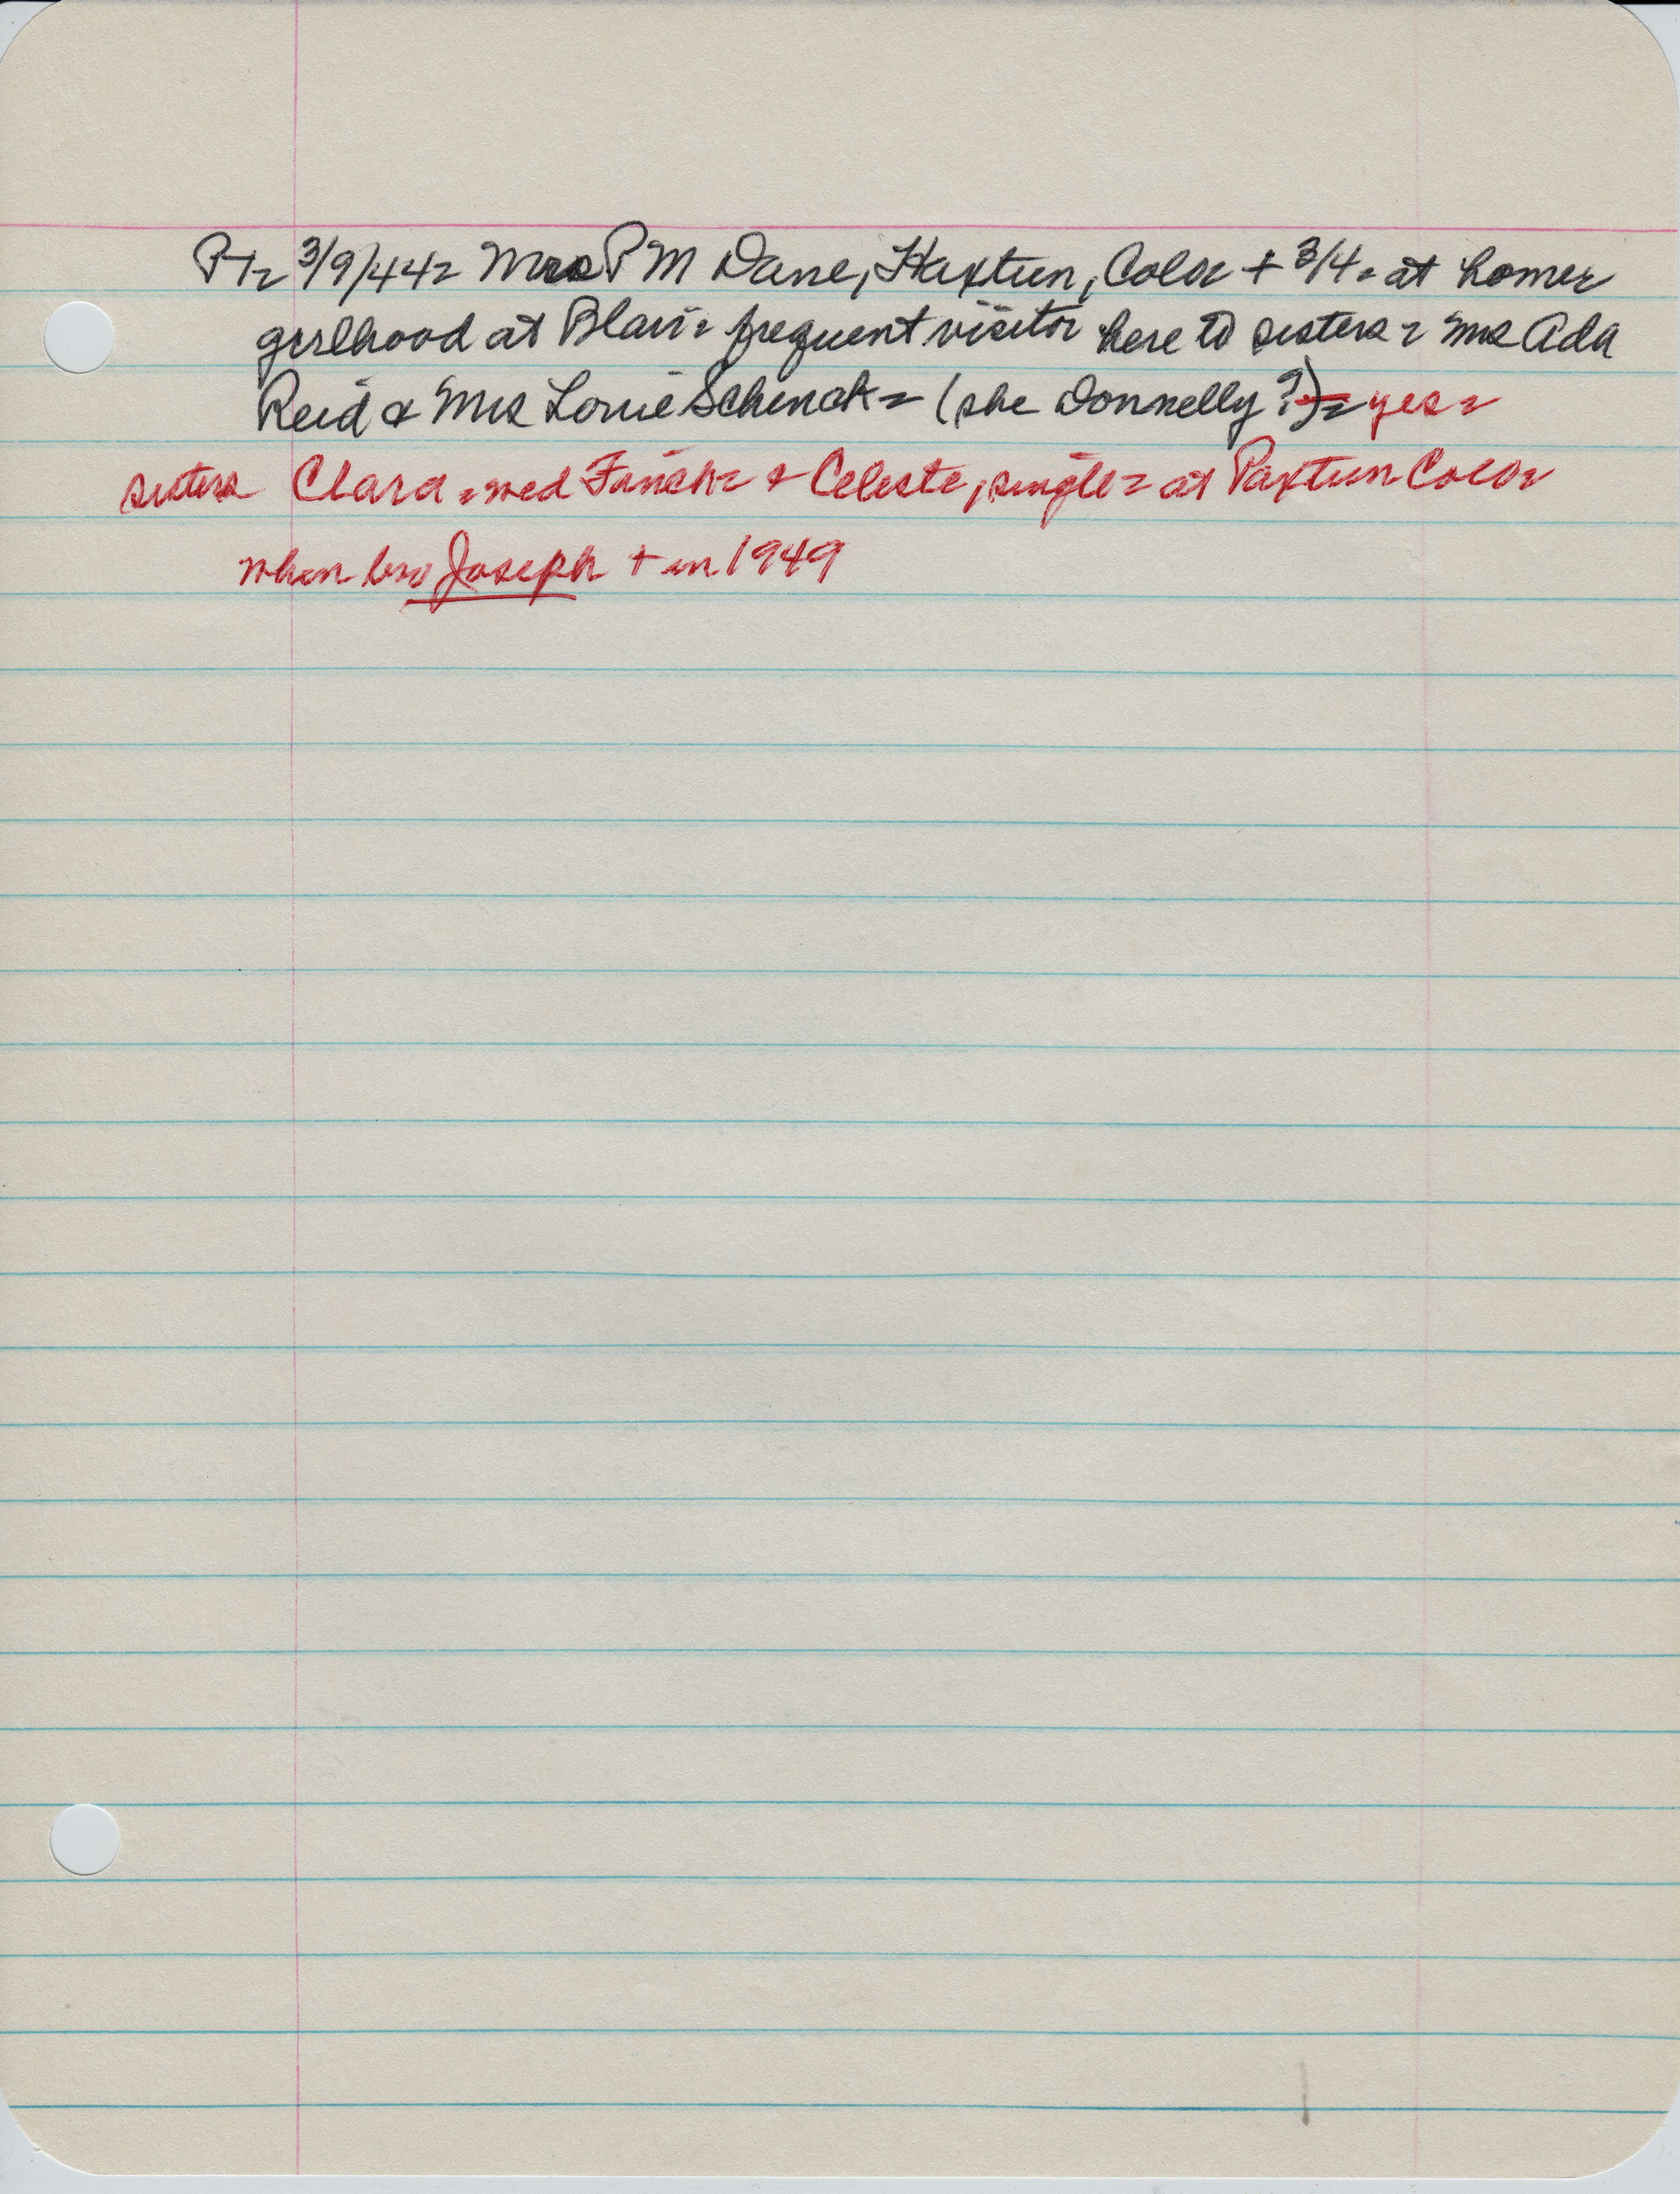 Pt= 3/9/44= Mrs P M Dane, Haxtun, Colo= + 3/4= at home=
girlhood at Blair= frequent visitor here to sisters= Mrs Ada
Reid & Mrs Louie Schenck= (she Donnelly?)= yes=
sisters Clara= med & Celeste, single= at Paxtun Colo=
when bro Joseph + in 1949